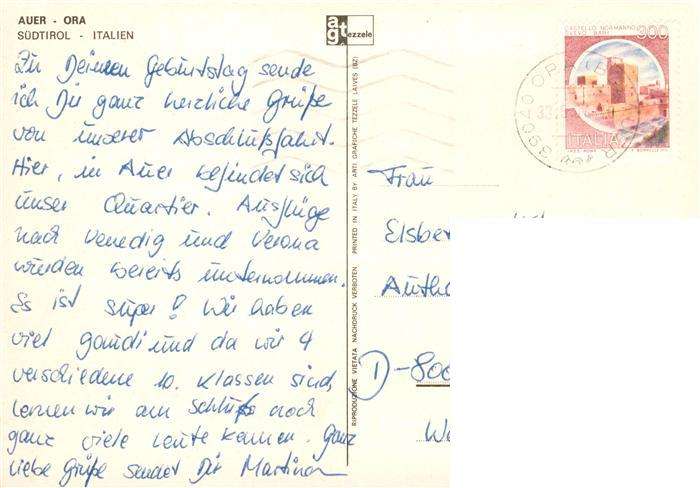 AUER - ORA
SÜDTIROL - ITALIEN
agt ezzele
Zu Deinem Geburtstag sende
ich Dir ganz herzliche Grüße
von unserer Abschlußfahrt.
Hier, in Auer befindet sich
unser Quartier. Ausflüge
nach Venedig und Verona
wurden bereits unternommen.
Es ist super! Wir haben
viel gaudi und da wir 4
verschiedene 10. Klassen sind,
lernen wir am Schluß noch
ganz viele Leute kennen. Ganz
liebe Grüße sendet Dir Martina
RIPRODUZIONE VIETATA NACHDRUCK VERBOTEN PRINTED IN ITALY BY ARTI GRAFICHE TEZZELE LAIVES (BZ)
CASTELLO NORMANNO
SVEVO BARI
300
ITALIA
39040 ORA
Frau
Elsbe
Auth
D-800